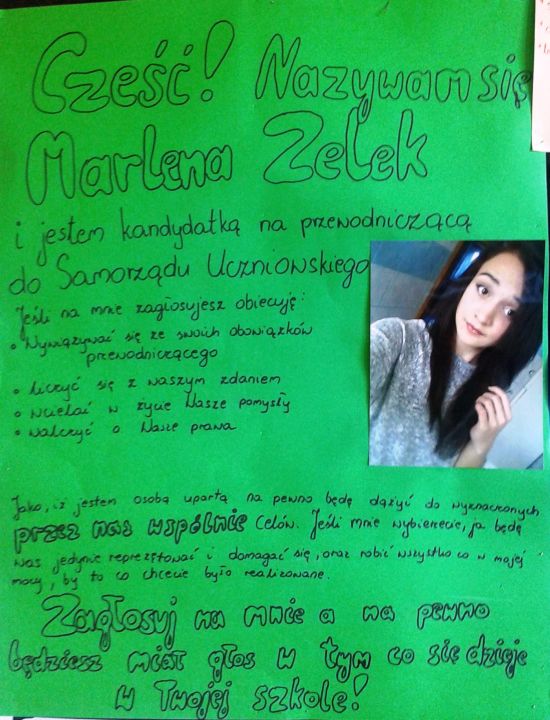 Cześć! Nazywam się
Marlena Zelek
i jestem kandydatką na przewodniczącą
do Samorządu Uczniowskiego
Jeśli na mnie zagłosujesz obiecuję:
• Wywiązywać się ze swoich obowiązków
przewodniczącego
• liczyć się z waszym zdaniem
• wcielać w życie Wasze pomysły
• walczyć o Wasze prawa
Jako, iż jestem osobą upartą na pewno będę dążyć do wyznaczonych
przez nas wspólnie celów. Jeśli mnie wybierzecie, ja będę
was jedynie reprezętować i domagać się, oraz robić wszystko co w mojej
mocy, by to co chcecie było realizowane.
Zagłosuj na mnie a na pewno
będziesz miał głos w tym co się dzieje
w Twojej szkole!